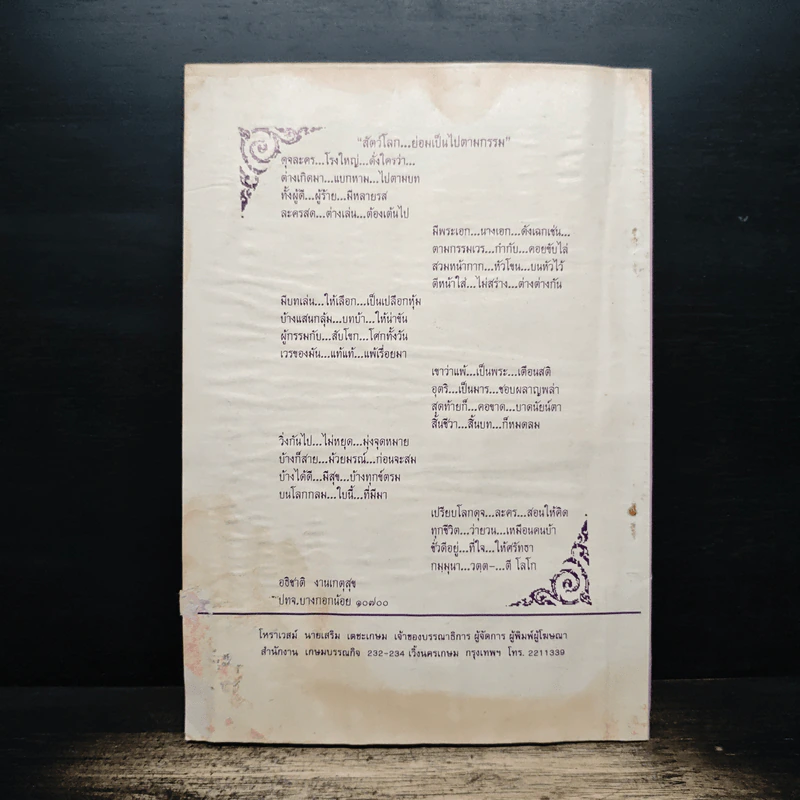 "สัตว์โลก...ย่อมเป็นไปตามกรรม"
ดุจละคร...โรงใหญ่...ดั่งใครว่า...
ต่างเกิดมา...แบกหาม...ไปตามบท
ทั้งผู้ดี...ผู้ร้าย...มีหลายรส
ละครสด...ต่างเล่น...ต้องเต้นไป
มีพระเอก...นางเอก...ดังเฉกเช่น...
ตามกรรมเวร...กำกับ...คอยขับไล่
สวมหน้ากาก...หัวโขน...บนหัวไว้
ตีหน้าใส่...ไม่สร่าง...ต่างต่างกัน
มีบทเล่น...ให้เลือก...เป็นเปลือกหุ้ม
บ้างแสนกลุ้ม...บทบ้า...ให้น่าขัน
ผู้กรรมกับ...สับโขก...โศกทั้งวัน
เวรของมัน...แท้แท้...แพ้เรื่อยมา
เขาว่าแพ้...เป็นพระ...เตือนสติ
อุตริ...เป็นมาร...ชอบผลาญพล่า
สุดท้ายก็...คอขาด...บาดนัยน์ตา
สิ้นชีวา...สิ้นบท...ก็หมดลม
วิ่งกันไป...ไม่หยุด...มุ่งจุดหมาย
บ้างก็สาย...ม้วยมรณ์...ก่อนจะสม
บ้างได้ดี...มีสุข...บ้างทุกข์ตรม
บนโลกกลม...ใบนี้...ที่มีมา
เปรียบโลกดุจ...ละคร...สอนให้คิด
ทุกชีวิต...ว่ายวน...เหมือนคนบ้า
ชั่วดีอยู่...ที่ใจ...ให้ศรัทธา
กมฺมุนา...วตฺต-...ตี โลโก
อธิชาติ งานเกตุสุข
ปทจ.บางกอกน้อย ๑๐๗๐๐
โหราเวสม์ นายเสริม เตชะเกษม เจ้าของบรรณาธิการ ผู้จัดการ ผู้พิมพ์ผู้โฆษณา
สำนักงาน เกษมบรรณกิจ 232-234 เวิ้งนครเกษม กรุงเทพฯ โทร. 2211339